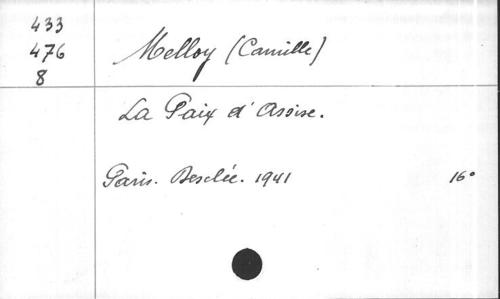 433
476
8
Melloy (Camille)
La Paix d'Assise.
Paris. Desclée. 1941 16°